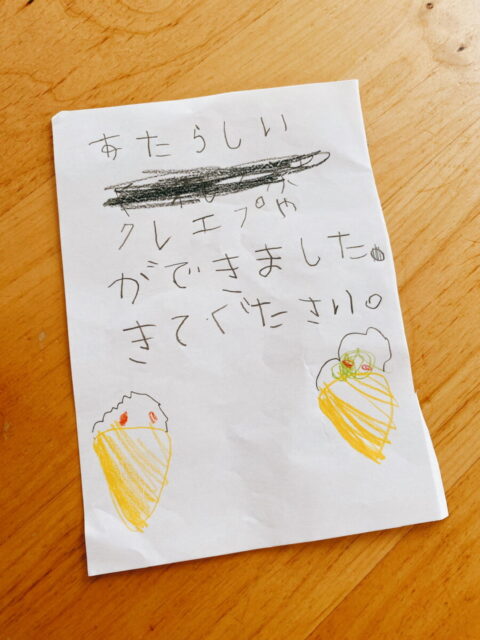 あたらしい
クレエプや
ができました。
きてぐたさい。